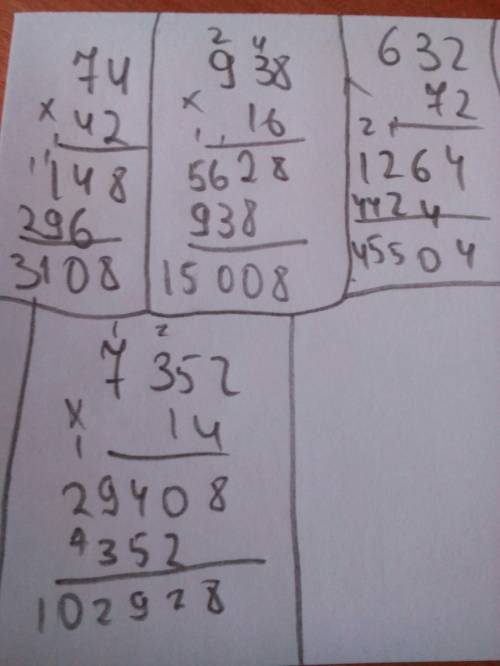 74
× 42
148
296
3108
2 4
938
× 16
5628
938
15008
632
72
2 1
1264
4424
45504
1 2
7352
× 14
1
29408
7352
102928